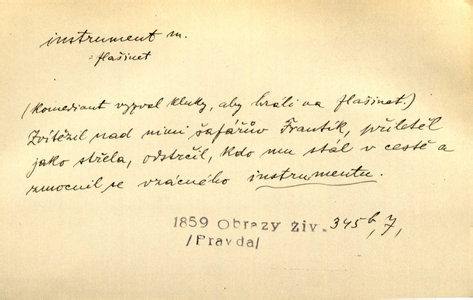 instrument m.
= flašinet
(Komediant vyzval kluky, aby hráli na flašinet.)
Zvítězil nad nimi šafářův Frantík, přiletěl
jako střela, odstrčil, kdo mu stál v cestě a
zmocnil se vzácného instrumentu.
1859 Obrazy živ. 345b, 7,
/Pravda/